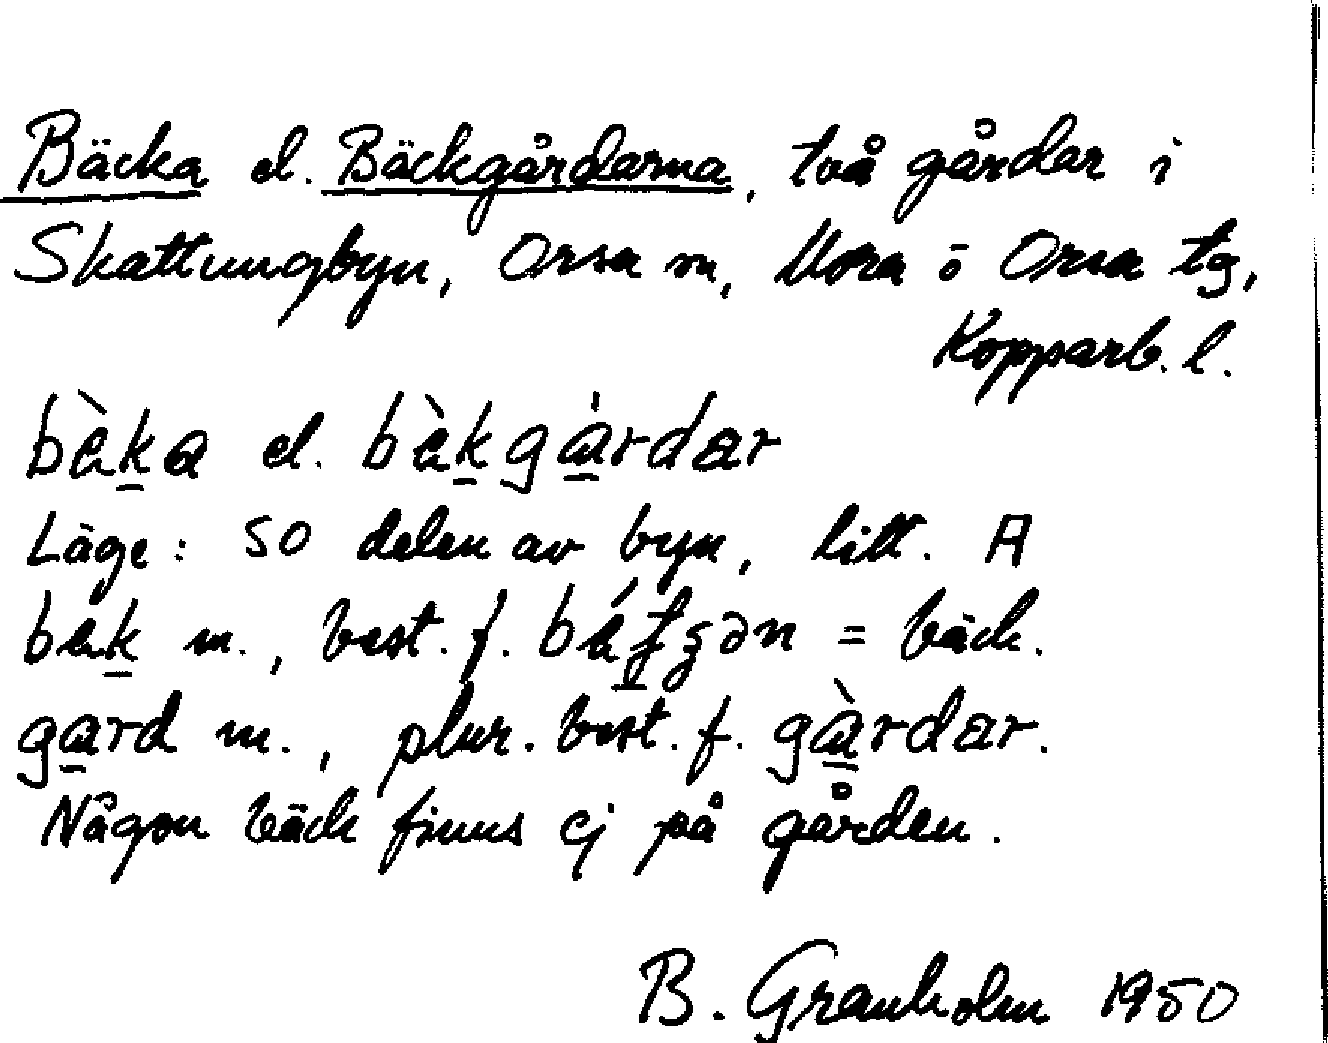 Bäcka el. Bäckgårdarna, två gårdar i
Skattungbyn, Orsa sn, Mora ō Orsa tg,
Kopparb. l.
bὲka el. bὲkgàrdar
Läge: SO delen av byn, litt. A
bɛk m., best. f. = bäck.
gard m., plur. best. f. gàrdar.
Någon bäck finns ej på gården.
B. Granholm 1950